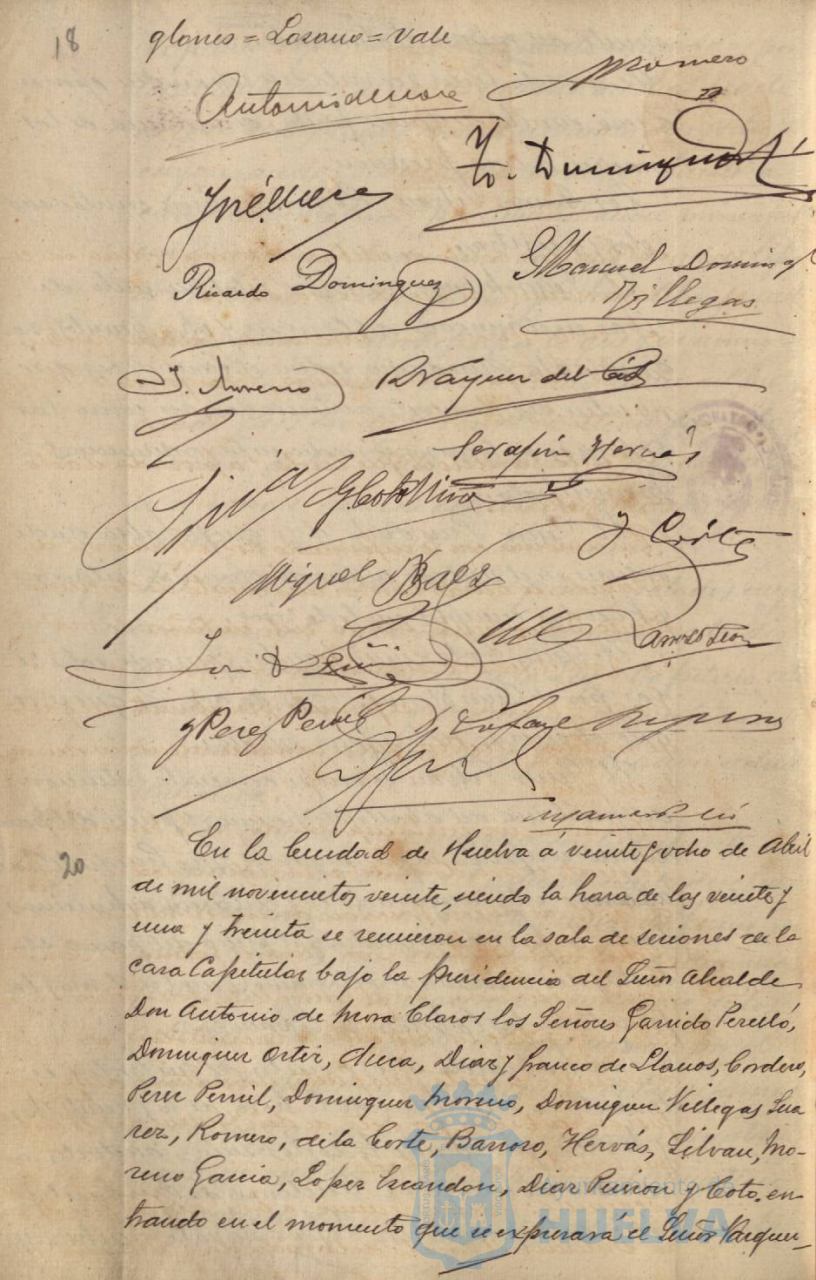 18
glones = Lozano = vale
Antonio de Mora
Romero
José Mesa
Fco. Dominguez
Ricardo Dominguez
Manuel Doming
Villegas
J. Moreno
R Vazquez del Cid
Serafin Hervás
G Coto
J Corte
Miguel Baez
Barroso
J Perez Pernil
20
En la Ciudad de Huelva á veinte y ocho de Abril
de mil novecientos veinte, siendo la hora de las veinte y
una y treinta se reunieron en la sala de sesiones de la
casa Capitular bajo la presidencia del Señor Alcalde
Don Antonio de Mora Claros los Señores Garrido Perelló,
Dominguez Ortiz, Diaz y Franco de Llanos, Cordero,
Perez Pernil, Dominguez Moreno, Dominguez Villegas Sua
rez, Romero, de la Corte, Barroso, Hervás, Silvan, Mo-
reno Garcia, Lopez Escandon, Diaz y Coto. en
trando en el momento que se expresará el Señor Vazquez
HUELVA